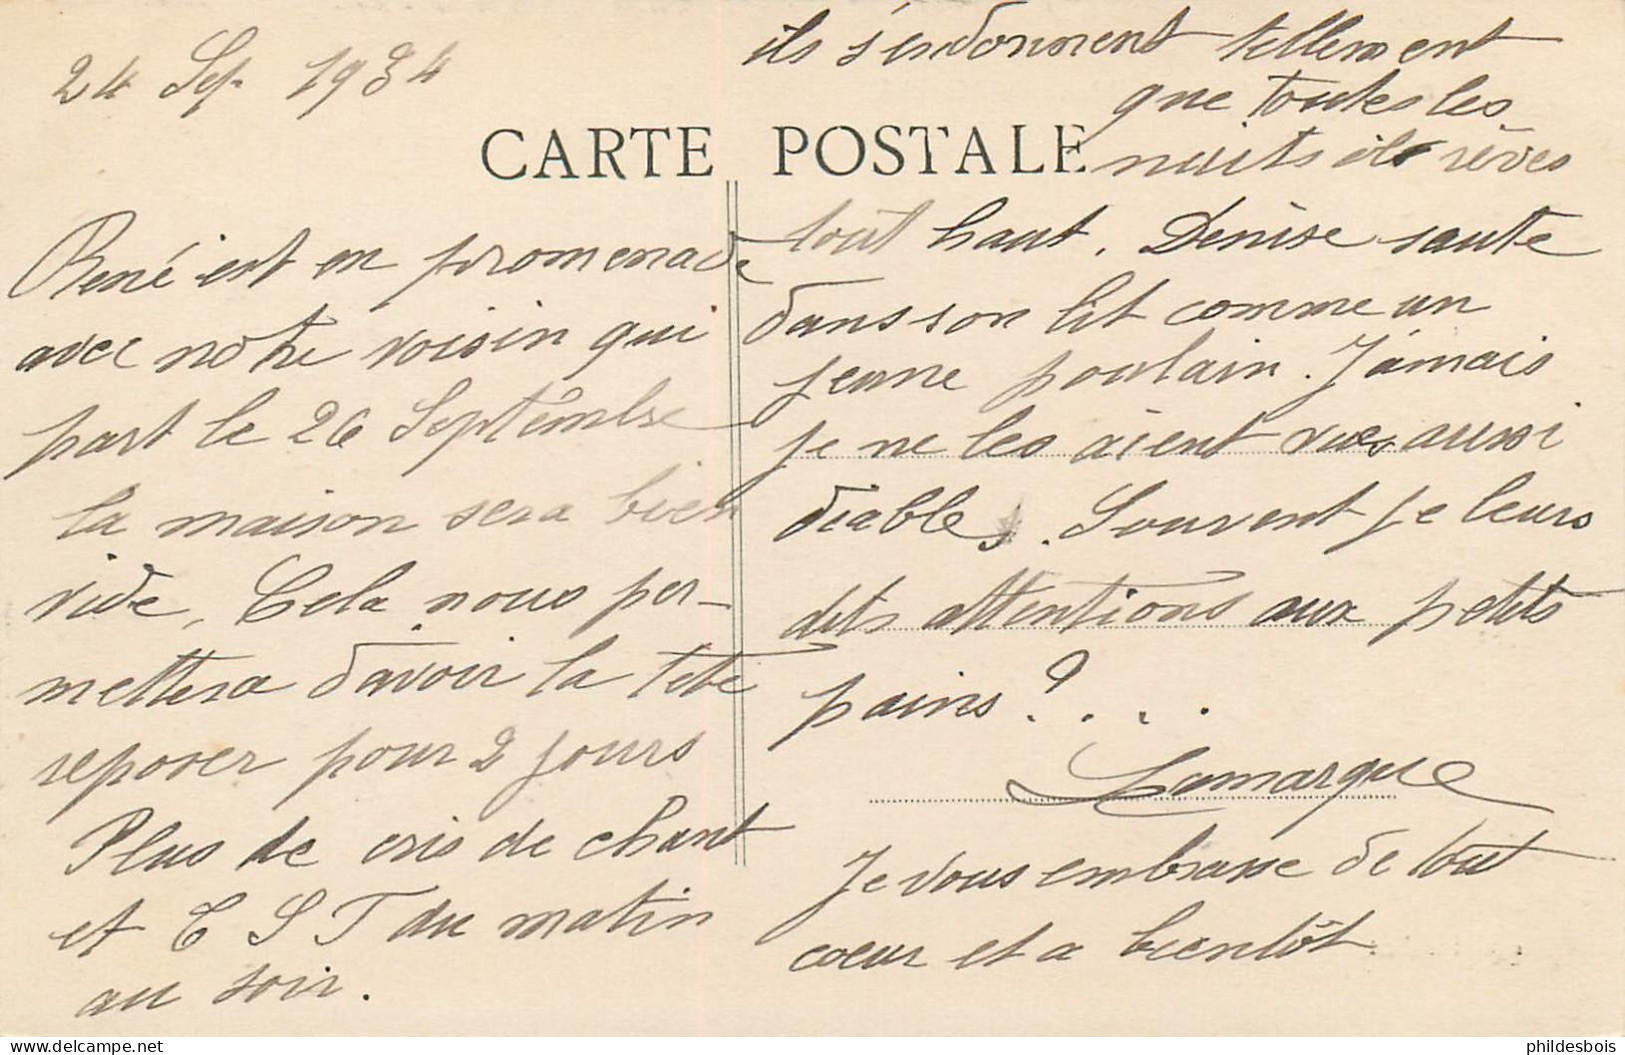 24 Sep. 1934
CARTE POSTALE
René est en promenade
avec notre voisin qui
part le 26 Septembre
la maison sera bien
vide, Cela nous per-
mettera d'avoir la tete
reposer pour 2 jours
Plus de cris de chant
et C S T du matin
au soir.
ils s'endorment tellement
que toutes les
nuits ils rêves
tout haut. Denise saute
dans son lit comme un
jeune poulain. Jamais
je ne les aient vues aussi
diables. Souvent je leurs
dits attentions aux petits
pains? . . . .
Lamarque
Je vous embrasse de tout
coeur et a bientôt
phildesbois
www.delcampe.net